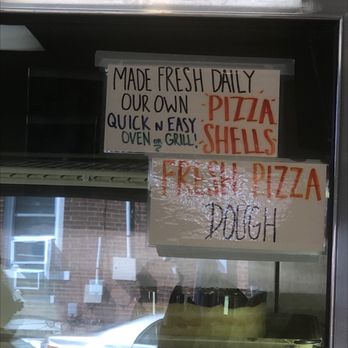 MADE FRESH DAILY
OUR OWN PIZZA
QUICK N EASY SHELLS
OVEN OR GRILL!
FRESH PIZZA
DOUGH